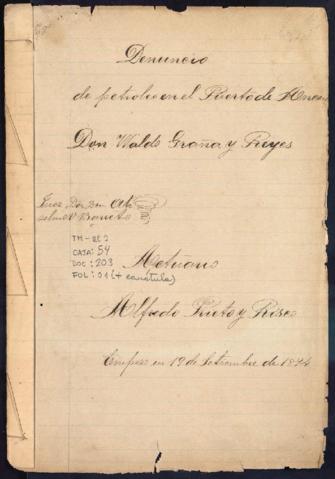 Denuncio
de petroleo en el Puerto de Ancon
Don Waldo Graña y Reyes
Juez
TM-RE 2
CAJA: 54
DOC: 203
FOL: 01 (+ carátula)
Actuario
Alfredo Prieto y Risco
Empezo en 19 de Setiembre de 1874